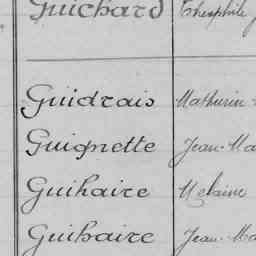 Guichard Théophile
Guidrais Mathurin
Guignette Jean-Ma
Guihaire Melaine
Guihaire Jean-Ma